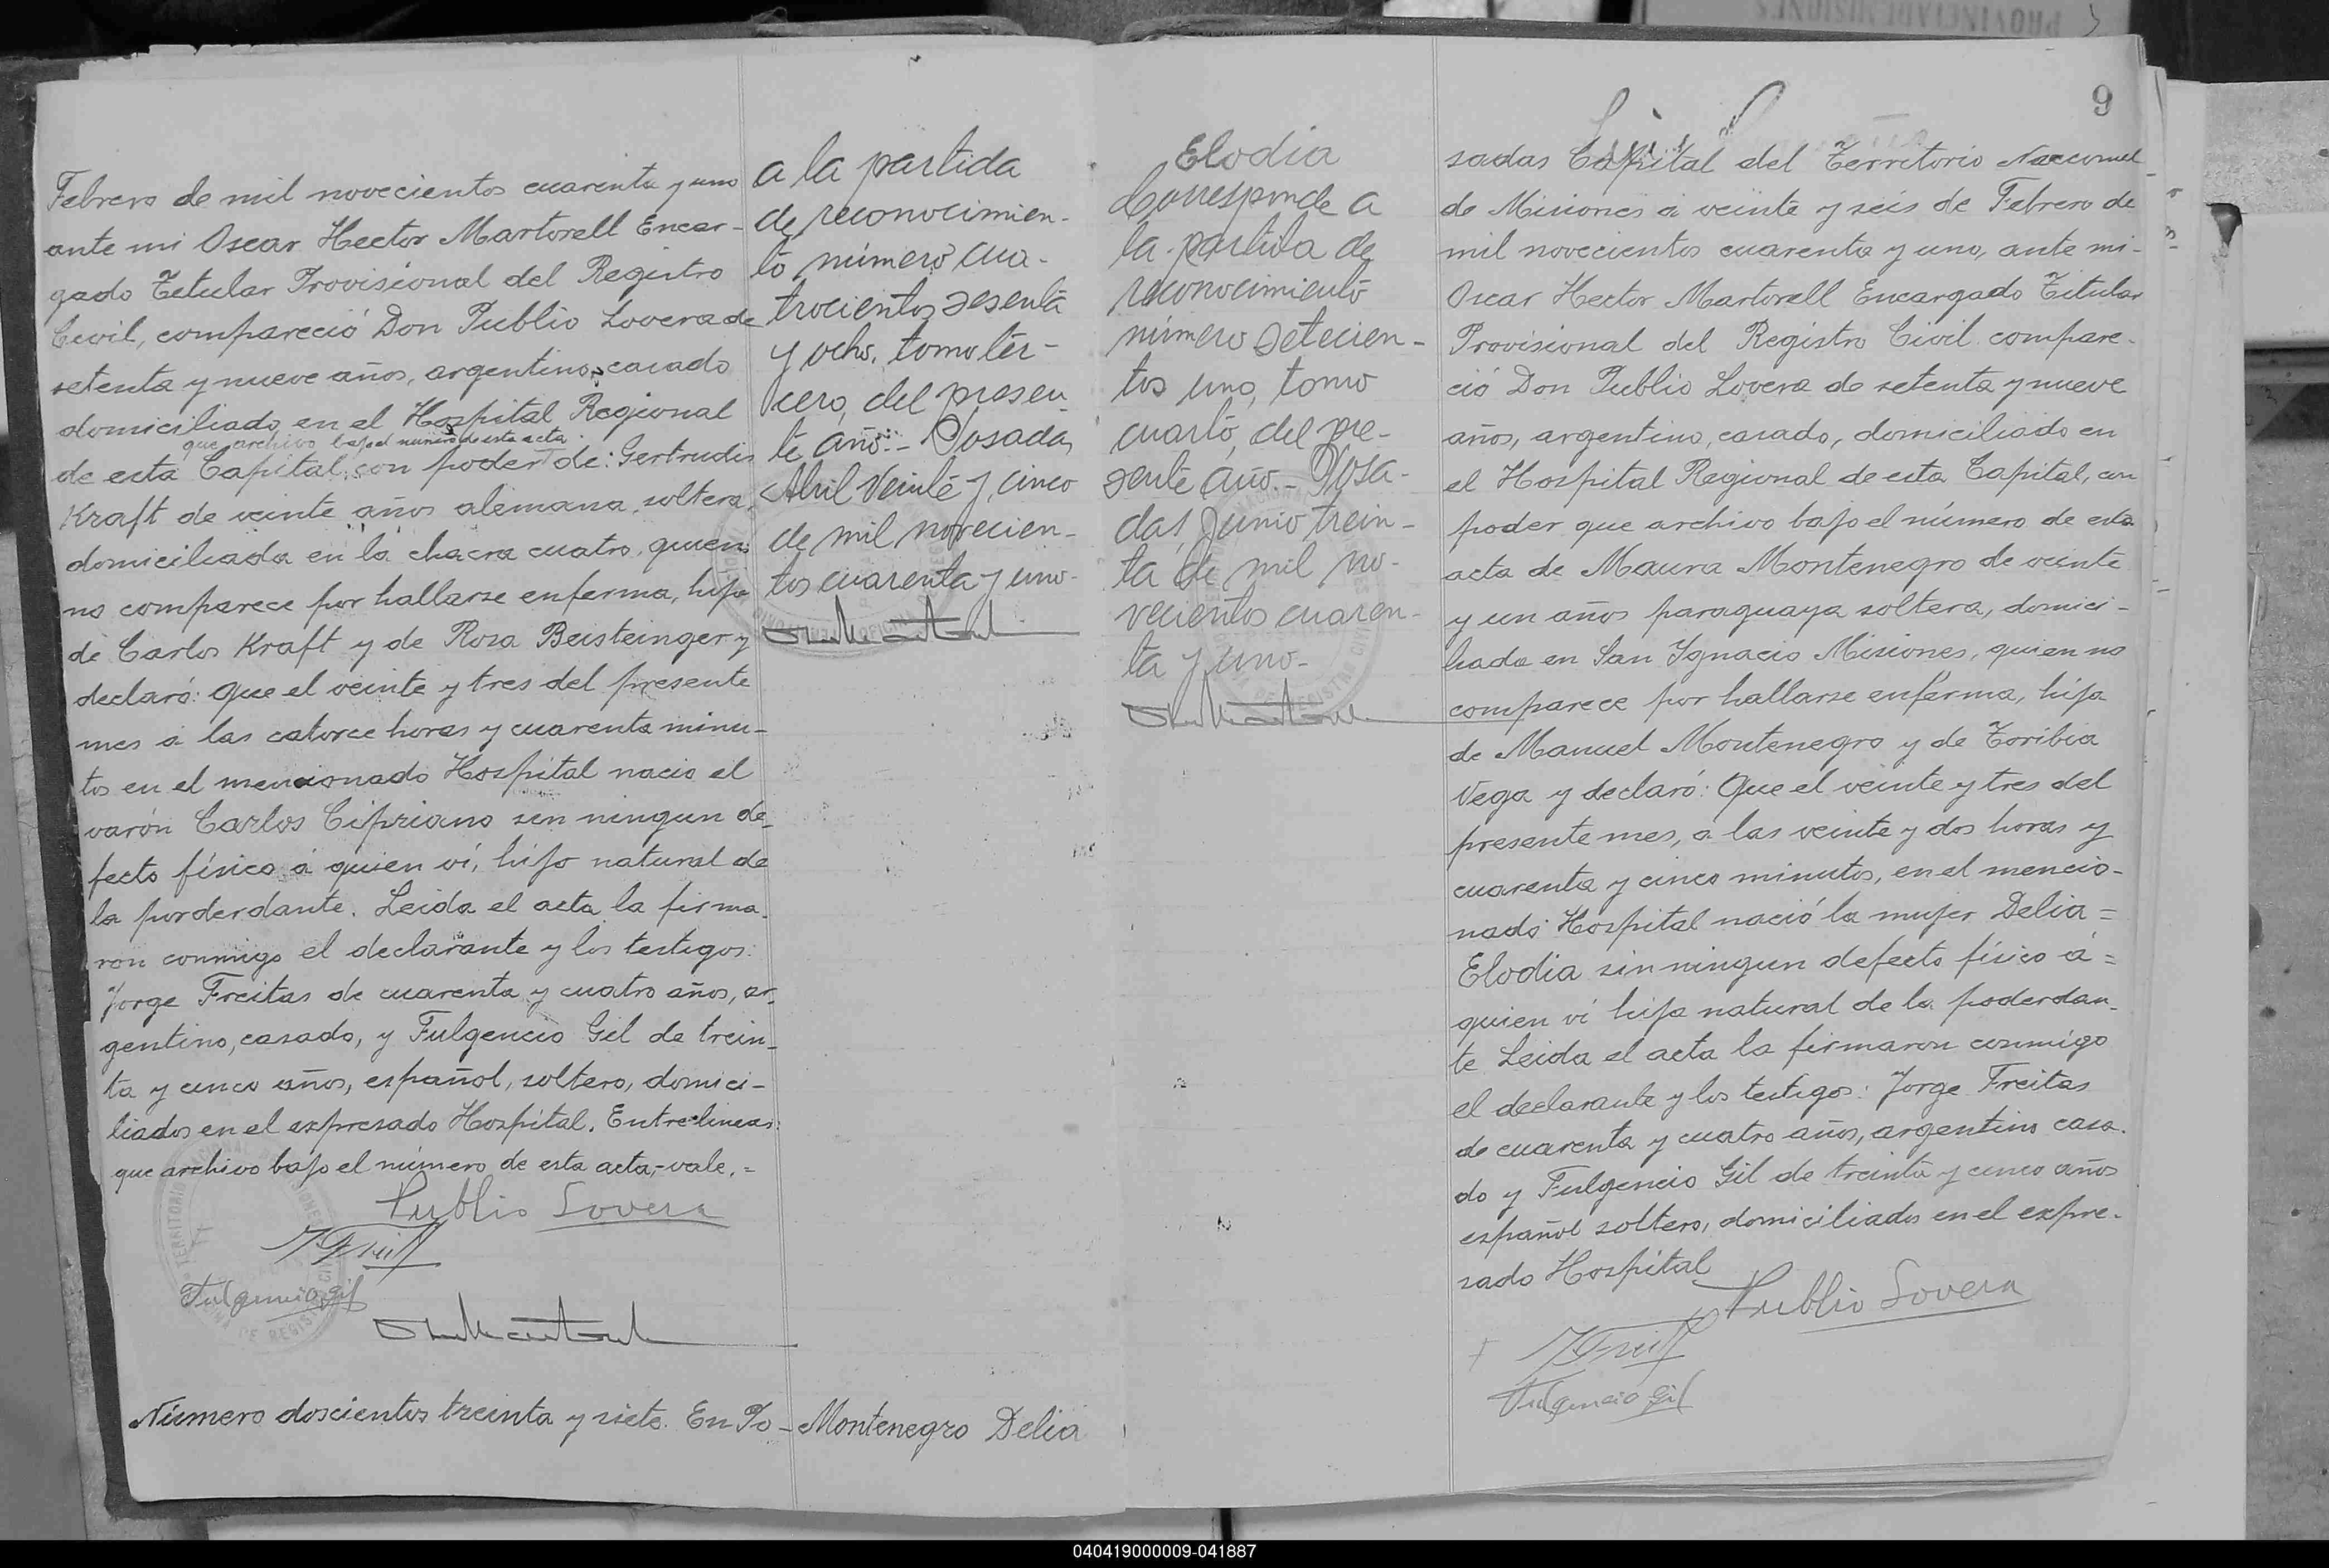 Febrero de mil novecientos cuarenta y uno
ante mi Oscar Hector Martorell Encar-
gado Titular Provisional del Registro
Civil, compareció Don Publio Lovera de
setenta y nueve años, argentino, casado
domiciliado en el Hospital Regional
que archivo bajo el numero de esta acta
de esta Capital, con poder de: Gertrudis
Kraft de veinte años alemana, soltera,
domiciliada en la chacra cuatro, quien
no comparece por hallarse enferma, hija
de Carlos Kraft y de Rosa Beisteinger y
declaró: Que el veinte y tres del presente
mes a las catorce horas y cuarenta minu-
tos en el mencionado Hospital nacio el
varón Carlos Cipriano sin ningun de-
fecto físico á quien ví, hijo natural de
la porderdante. Leida el acta la firma-
ron conmigo el declarante y los testigos:
Jorge Freitas de cuarenta y cuatro años, ar-
gentino, casado, y Fulgencio Gil de trein-
ta y cinco años, español, soltero, domici-
liados en el expresado Hospital. Entre-lineas:
que archivo bajo el número de esta acta,-vale.=
Publio Lovera
Fulgencio Gil
Número doscientos treinta y siete. En Po-
a la partida
de reconocimien-
to número cua-
trocientos sesenta
y ocho, tomo ter-
cero, del presen-
te año.- Posadas,
Abril Veinte y cinco
de mil novecien-
tos cuarenta y uno-
Montenegro Delia
Elodia
Corresponde a
la partida de
reconocimiento
número setecien-
tos uno, tomo
cuarto, del pre-
sente año.- Posa-
das, Junio trein-
ta de mil no-
vecientos cuaren-
ta y uno-
9
sadas Capital del Territorio Nacional
de Misiones a veinte y seis de Febrero de
mil novecientos cuarenta y uno, ante mi-
Oscar Hector Martorell Encargado Titular
Provisional del Registro Civil compare-
ció Don Publio Lovera de setenta y nueve
años, argentino, casado, domiciliado en
el Hospital Regional de esta Capital, con
poder que archivo bajo el número de esta
acta de Maura Montenegro de veinte
y un años paraguaya soltera, domici-
liada en San Ignacio Misiones, quien no
comparece por hallarse enferma, hija
de Manuel Montenegro y de Toribia
Vega y declaró: Que el veinte y tres del
presente mes, a las veinte y dos horas y
cuarenta y cinco minutos, en el mencio-
nado Hospital nació la mujer Delia=
Elodia sin ningun defecto físico á=
quien ví hija natural de la poderdan-
te Leida el acta la firmaron conmigo
el declarante y los testigos: Jorge Freitas
de cuarenta y cuatro años, argentino casa-
do y Fulgencio Gil de treinta y cinco años
español soltero, domiciliados en el expre-
sado Hospital
Publio Lovera
Fulgencio Gil
040419000009-041887